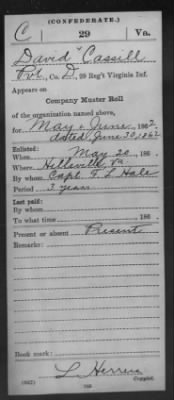 (CONFEDERATE.)
C 29 Va.
David Cassell
Pvt, Co. D, 29 Reg't Virginia Inf.
Appears on
Company Muster Roll
of the organization named above,
for May & June, 1862.
dated June 30, 1862
Enlisted:
When May 20, 186 .
Where Hillsville, Va.
By whom Capt. F. L. Hale
Period 3 years
Last paid:
By whom
To what time , 186 .
Present or absent Present
Remarks:
Book mark:
L. Herren
(642) Copyist.